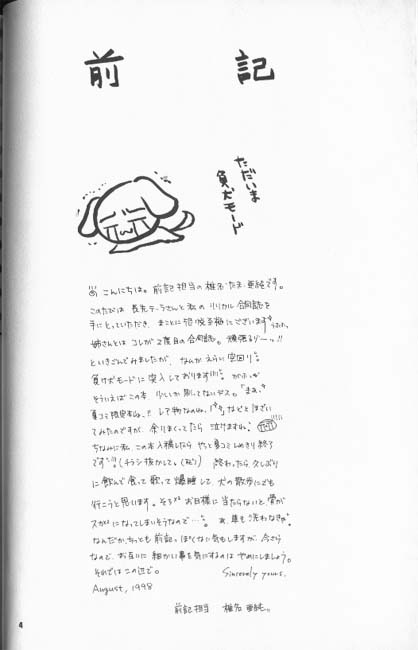 前記
ただいま
負犬モード
こんにちは。前記担当の椎名・たま・亜純です。
このたびは 長先テーラさんと 私の リリカル 合同誌を
手にとっていただき、まことに
姉さんとは コレが 2度目の合同誌。頑張るゾ〜ッ!!
といきごんでみましたが、なんか えらい 空回り
負け犬モードに 突入しております
そういえば この本、少ししか刷ってないデス。「まぁ、
夏コミ限定本よね、!! レア物なのね、 などと ほざい
てみたのですが、余りまくってたら 泣けますね。
ちなみに 私、この本入稿したら やっと 夏コミしめきり終了
です (チラシ抜かして。) 終わったら 久しぶり
に 飲んで 食って 歌って 爆睡して、犬の散歩にでも
行こうと思います。そろそろ お日様に 当たらないと 骨が
スカスカになってしまいそうなので…。 あ、車も洗わなきゃ。
なんだか、ちっとも 前記っぽくない気もしますが、今さら
なので、お互いに 細かい事を 気にするのは やめにしましょう。
それでは この辺で。 Sincerely yours,
August, 1998
前記担当 椎名 亜純。
4